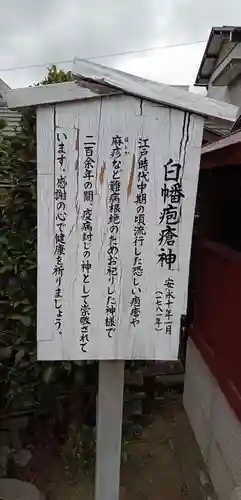 白幡疱瘡神
安永十年一月
(一七八一年)
江戸時代中期の頃流行した恐しい疱瘡や
麻疹はしかなど難病根絶のためお祀りした神様で
二百余年の間、疫病封じの神として崇敬されて
います。感謝の心で健康を祈りましょう。